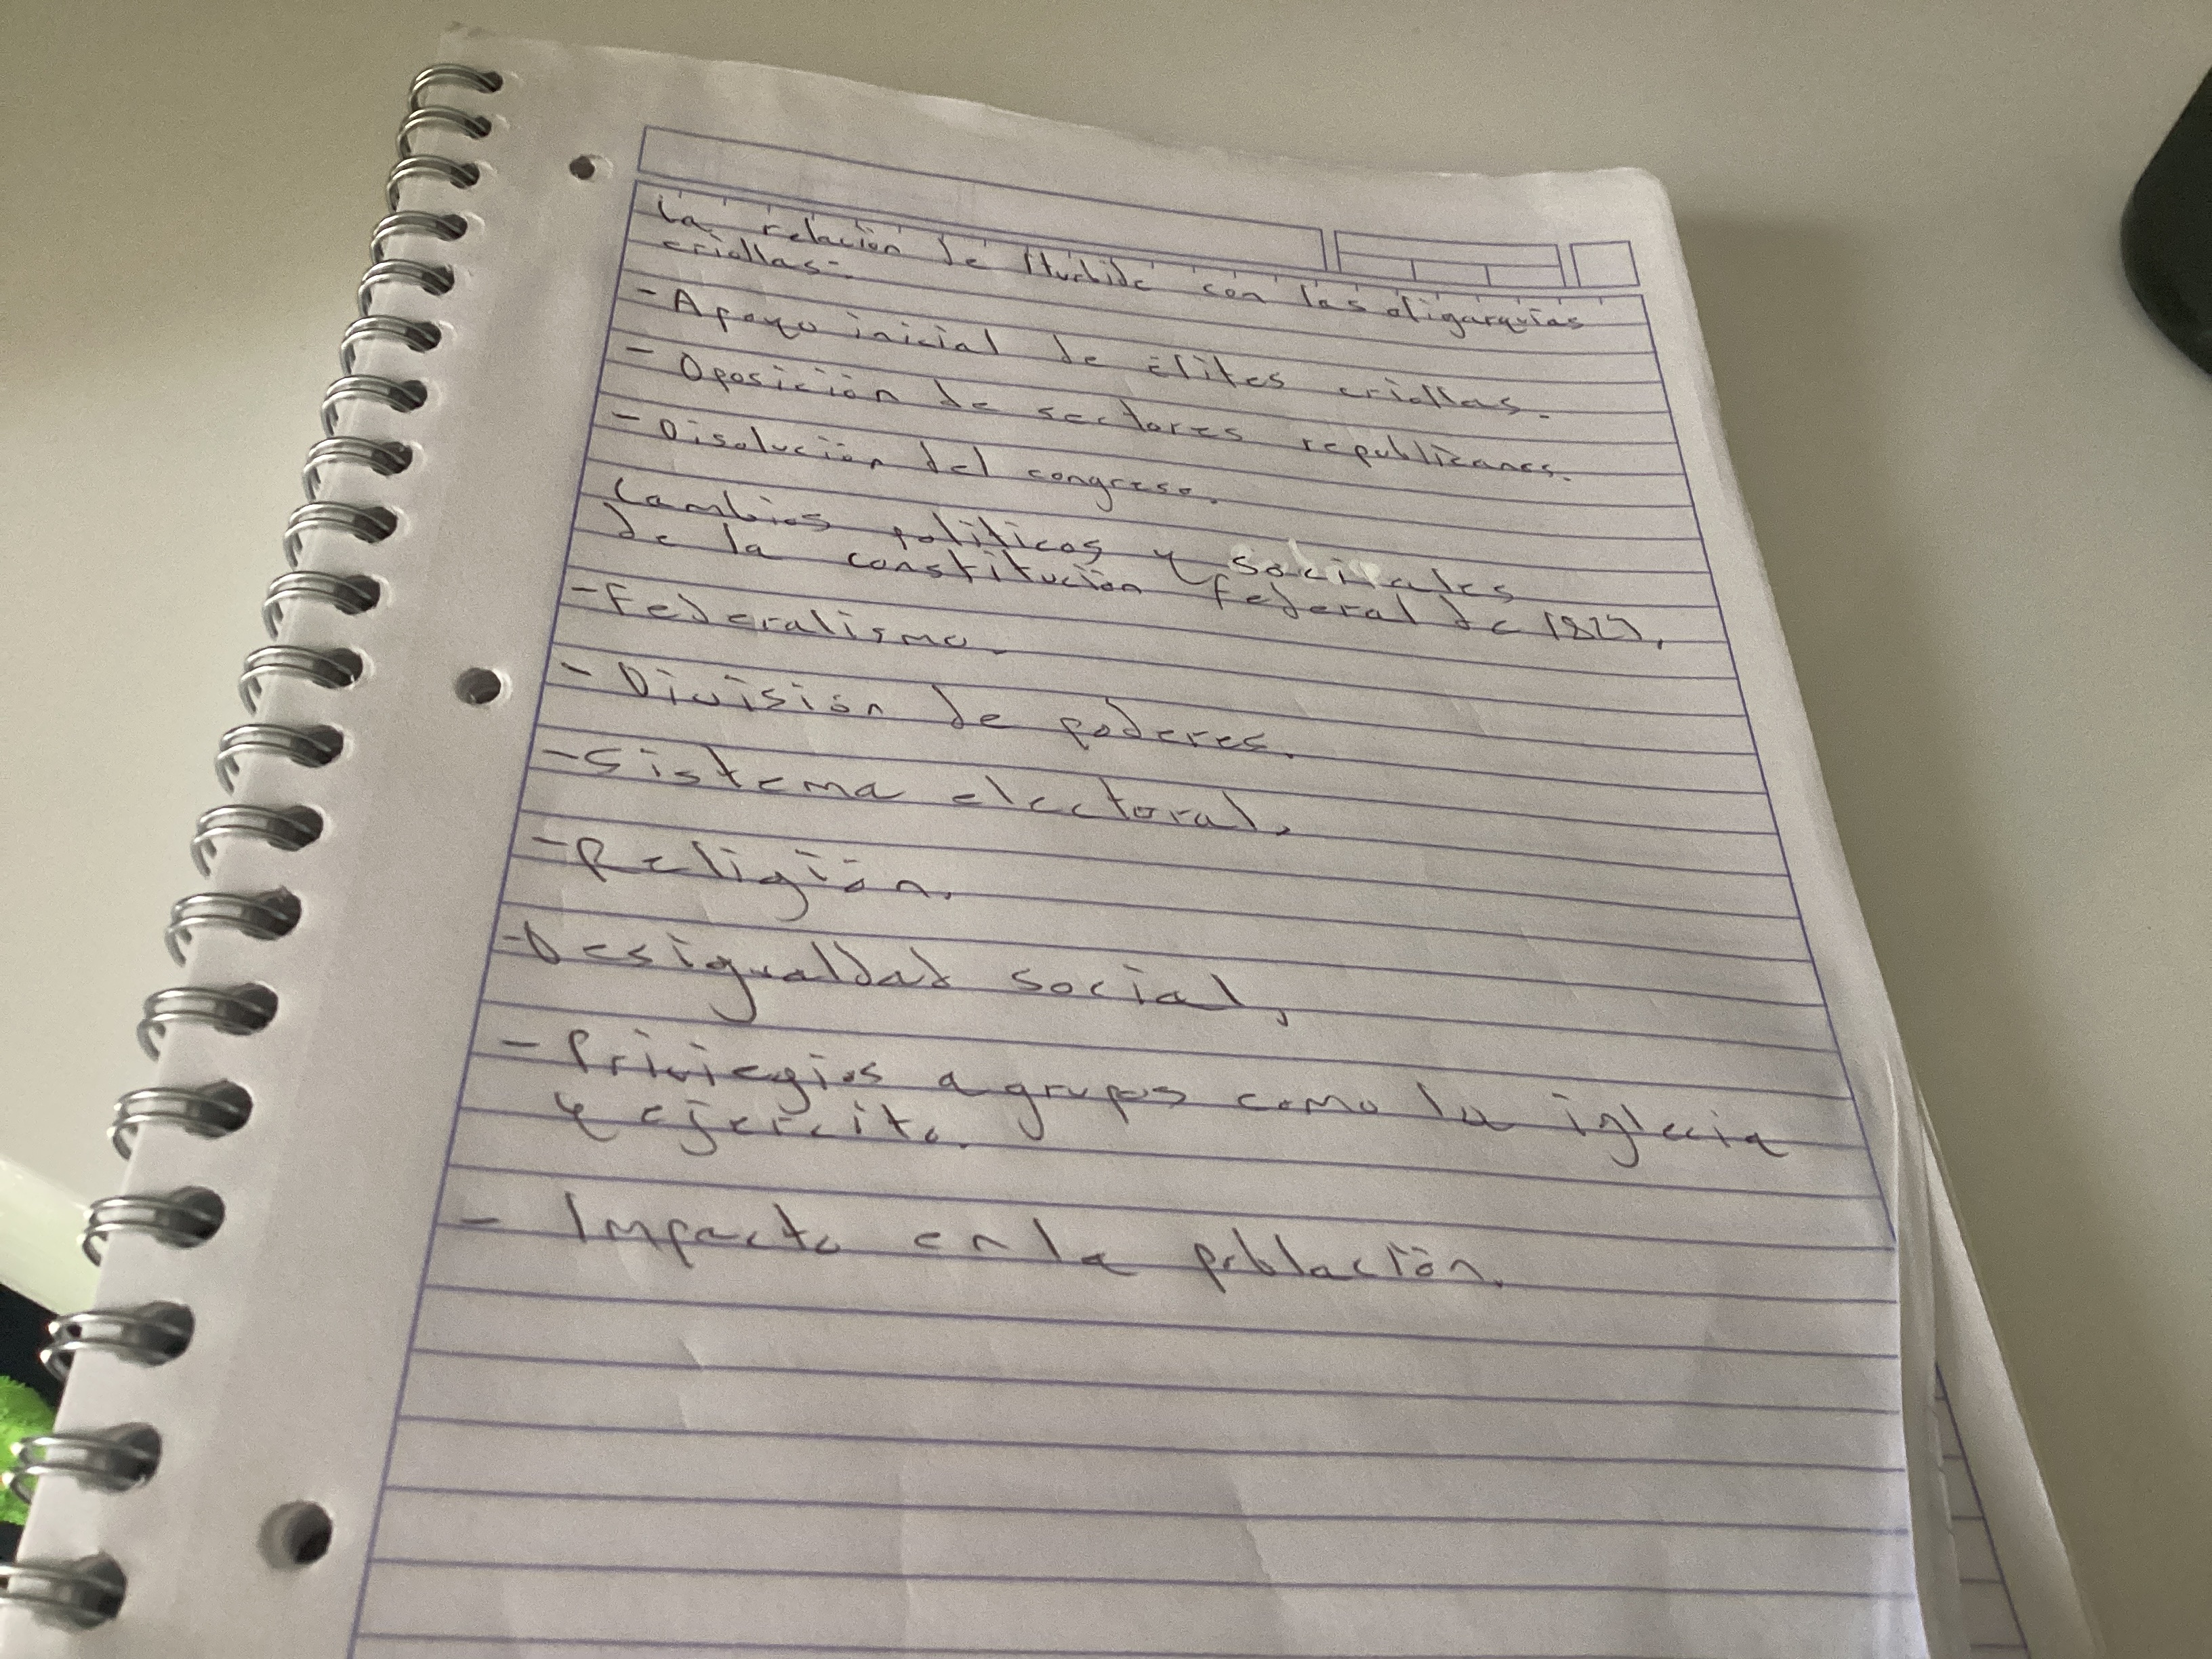 La relación de Iturbide con las oligarquías
criollas.
- Apoyo inicial de élites criollas.
- Oposición de sectores republicanos.
- Disolución del congreso.
Cambios políticos y sociales
de la constitución federal de 1824.
- Federalismo.
- División de poderes.
- Sistema electoral.
- Religión.
- Desigualdad social.
- Priviegios a grupos como la iglecia
y ejercito.
- Impacto en la población.